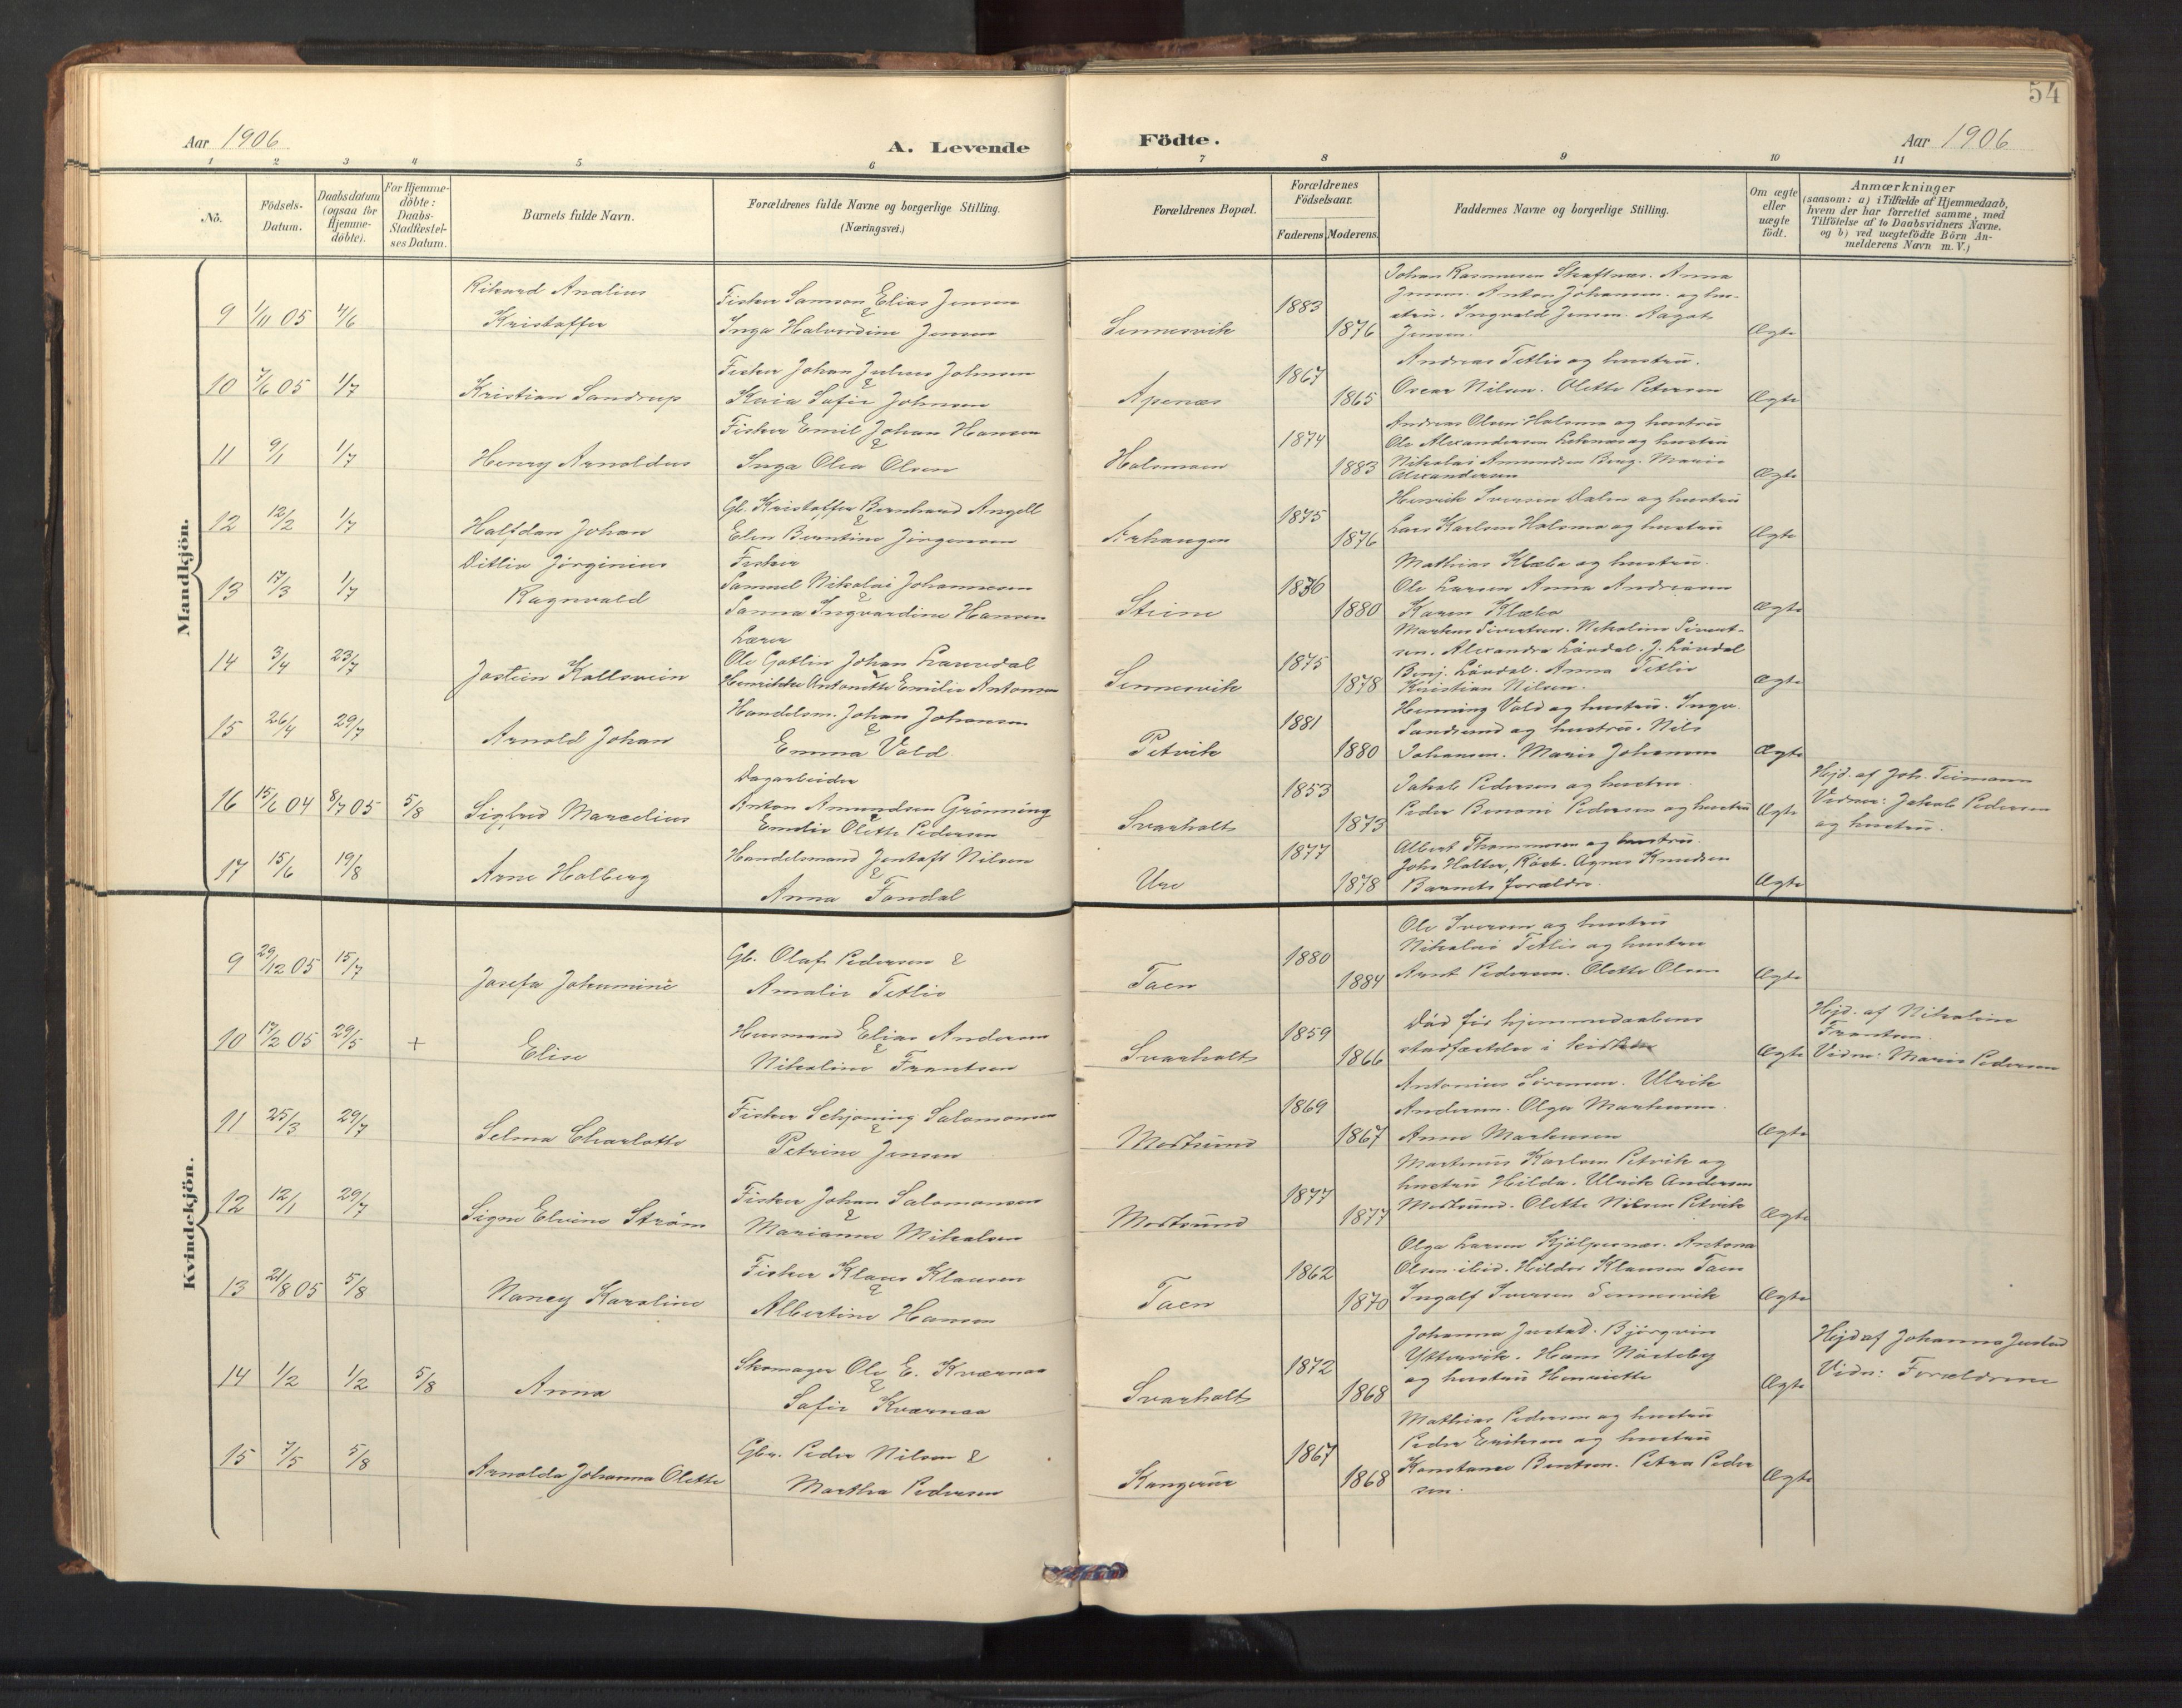 54
Aar 1906
A. Levende
Födte.
Aar 1906
1 2 3 4 5 6 7 8 9 10 11
No.
Födsels-Datum.
Daabsdatum (ogsaa for Hjemme-döbte).
For Hjemme-döbte: Daabs-Stadfæstel-ses Datum.
Barnets fulde Navn.
Forældrenes fulde Navne og borgerlige Stilling. (Næringsvei.)
Forældrenes Bopæl.
Forældrenes Födselsaar.
Faderens. Moderens.
Faddernes Navne og borgerlige Stilling.
Om ægte eller uægte födt.
Anmærkninger
(saasom: a) i Tilfælde af Hjemmedaab,
hvem der har forrettet samme, med
Tilföielse af to Daabsvidners Navne.
og b) ved uægtefödte Börn An-
melderens Navn m. V.)
Mandkjön.
9 1/11 05 4/6
Rikard Analius
Kristoffer
Fisker Samson Elias Jensen
&
Inga Halverdine Jensen
Sennesvik
1883
1876
Johan Rasmussen Skaftnes. Anna
Jensen. Anton Johansen. og hu-
stru. Ingvald Jensen. Aagot
Jensen.
Ægte
10 7/6 05 1/7
Kristian Sandrup
Fisker Johan Julius Johnsen
&
Karia Sofie Johnsen
Apenæs
1867
1865
Andreas Tetlie og hustru.
Oscar Nilsen. Olette Petersen
Ægte
11 9/1 1/7
Henry Arnoldus
Fisker Emil Johan Hansen
&
Inga Olea Olsen
Holsmoen
1874
1883
Andreas Olsen Holsmo og hustru
Ole Alexandersen Leknes og hustru
Nikolai Amundsen Berg. Marie
Alexandersen
Ægte
12 12/2 1/7
Halfdan Johan
Gb. Kristoffer Bernhard Angell
&
Elen Berntine Jörgensen
Farhaugen
1875
1876
Henrik Iversen Dalen og hustru
Lars Karlsen Holsmo og hustru
Ægte
13 17/3 1/7
Ditliv Jörginius
Ragnvald
Fisker
Samuel Nikolai Johannesen
&
Sanna Ingvardine Hansen
Steine
1876
1880
Mathias Klæbo og hustru.
Ole Larsen Anna Andreasen
Karen Klæbo
Ægte
14 3/4 23/7
Jostein Kollsvein
Lærer
Ole Gotlin Johan Laxredal
&
Henrikke Antonette Emilie Antonsen
Sennesvik
1875
1878
Markus Sivertsen. Nikoline Sivert-
sen. Alexandra Lövdal. J. Lövdal
Benj. Lövdal. Anna Tetlie
Kristian Nilsen.
Ægte
15 26/4 29/7
Arnold Johan
Handelsm. Johan Johansen
&
Emma Vold
Petvik
1881
1880
Henning Vold og hustru. Inger
Sandsund og hustru. Nils
Johansen. Marie Johansen
Ægte
16 15/6 04 8/7 05 5/8
Sigfred Marcelius
Dagarbeider
Anton Amundsen Grönning
&
Emelie Olette Pedersen
Svarholt
1853
1873
Jakob Pedersen og hustru.
Peder Benoni Pedersen og hustru
Ægte
Hjd. af Joh. Teimann
Vidner: Jakob Pedersen
og hustru.
17 15/6 19/8
Arne Holberg
Handelsmand Jentoft Nilsen
&
Anna Fondal
Ure
1877
1878
Albert Thommesen og hustru.
Johs Holter, Röst. Agnes Knudsen
Barnets forældre.
Ægte
Kvindekjön.
9 29/12 05 15/7
Josefa Johannine
Gb. Olaf Pedersen &
Amalie Tetlie
Taen
1880
1884
Ole Iversen og hustru
Nikolai Tetlie og hustru
Arnt Pedersen. Olette Olsen
Ægte
10 17/2 05 29/5 +
Elise
Husmand Elias Andersen
&
Nikoline Frantsen
Svarholt
1859
1866
Död för hjemmedaabens
stadfæstelse i kirken
Ægte
Hjd. af Nikoline
Frantsen.
Vidne: Marie Pedersen
11 25/3 29/7
Selma Charlotte
Fisker Schjøning Salomonsen
&
Petrine Jensen
Mortsund
1869
1867
Antonius Sörensen. Ulrik
Andersen. Olga Markussen.
Anne Markussen
Ægte
12 12/1 29/7
Signe Elvine Ström
Fisker Johan Salomonsen
&
Marianne Mikalsen
Mortsund
1877
1877
Martinus Karlsen Petvik og
hustru Hilda. Ulrik Andersen
Mortsund. Olette Nilsen Petvik
Ægte
13 21/8 05 5/8
Nancy Karoline
Fisker Klaus Klausen
&
Albertine Hansen
Taen
1862
1870
Olga Larsen Kjölpesnes. Antona
Olsen ibid. Hildor Klausen Taen
Ingolf Iversen Sennesvik
Ægte
14 1/2 1/2 5/8
Anna
Skomager Ole E. Kværnaa
&
Sofie Kværnaa
Svarholt
1872
1868
Johanna Justad. Björgvin
Yttervik. Hans Nösteby
og hustru Henriette
Ægte
Hjd af Johanna Justad
Vidn: Forældrene
15 7/5 5/8
Arnolda Johanna Olette
Gbr. Peder Nilsen &
Martha Pedersen
Kangerur
1867
1868
Mathias Pedersen og hustru
Peder Eriksen og hustru
Konstanse Bentsen. Petra Peder
sen.
Ægte